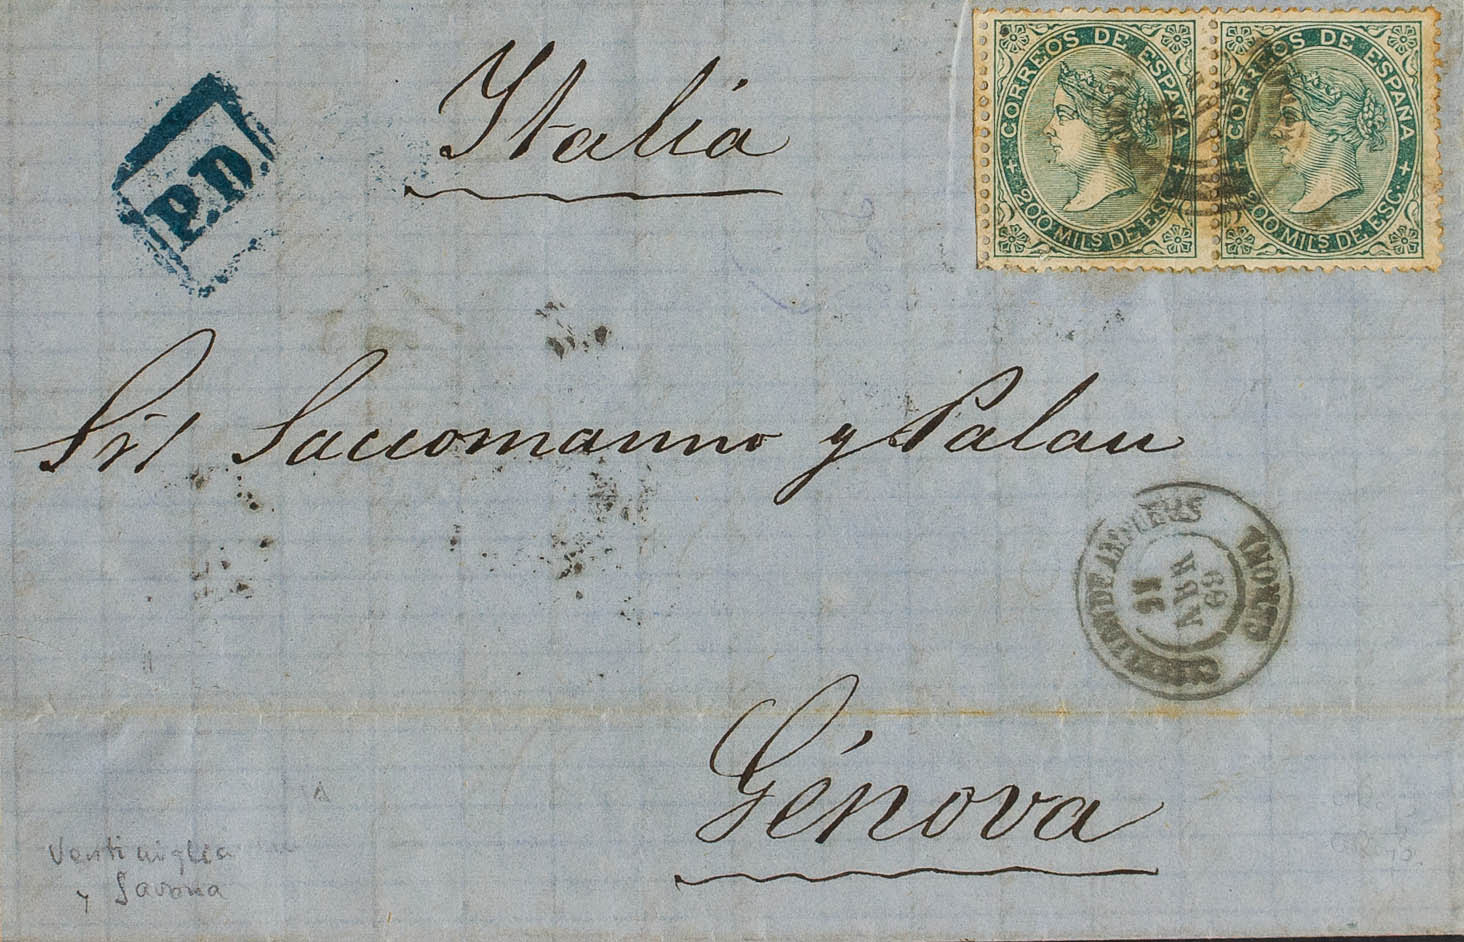 Italia
CORREOS DE ESPAÑA
200 MILS DE ESC.
CORREOS DE ESPAÑA
200 MILS DE ESC.
P.D.
Sres Saccomanno y Palau
GERONA
ABR
69
Génova
Ventimiglia
y Savona